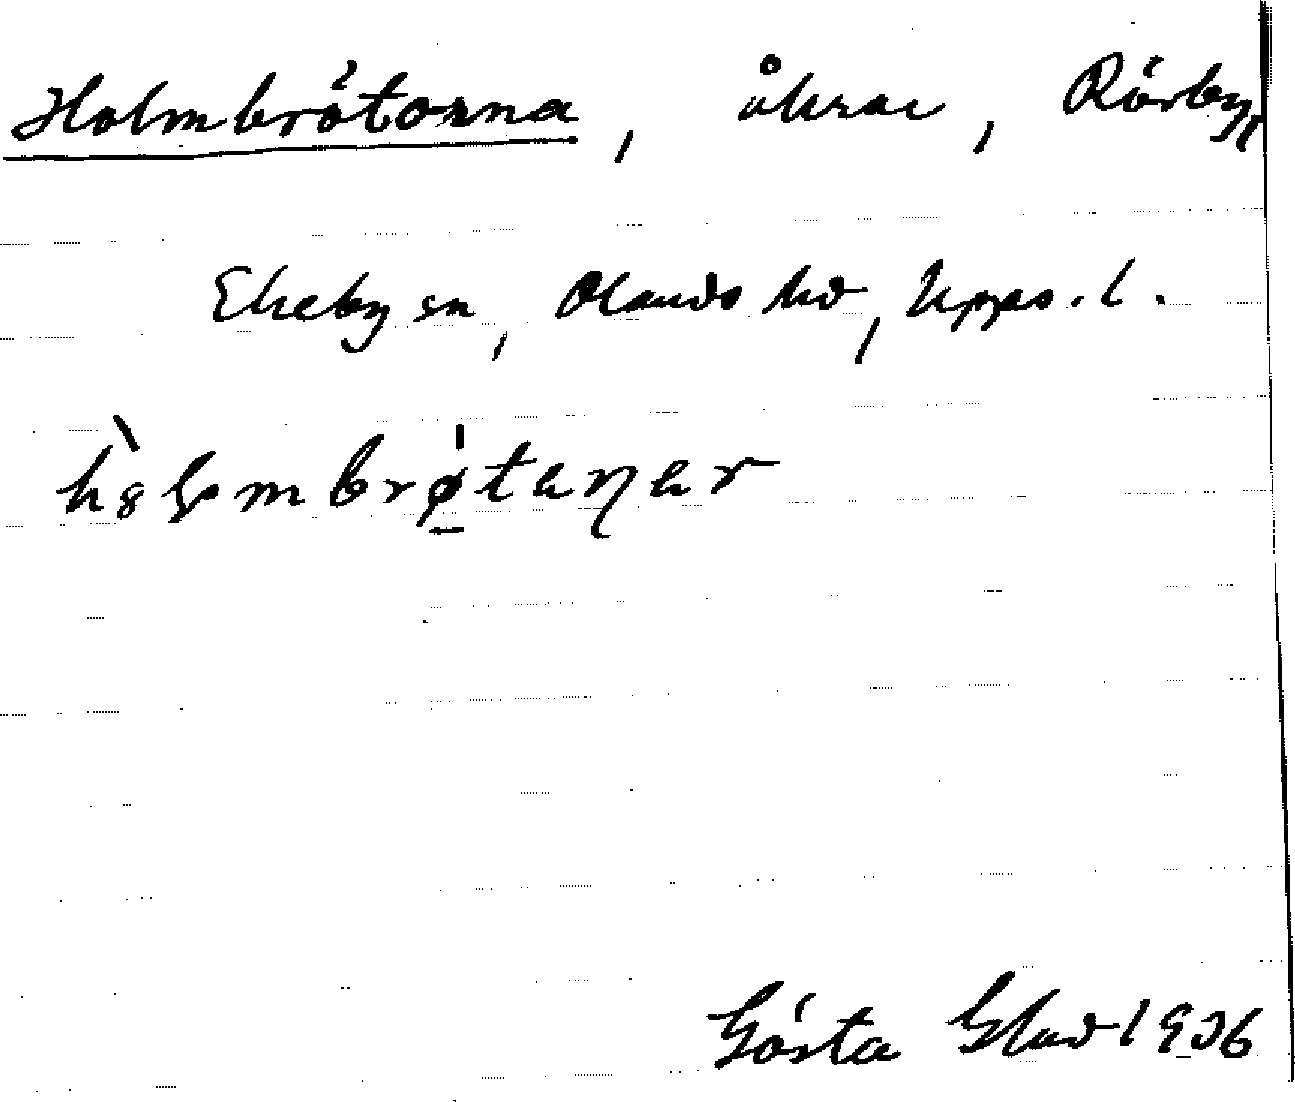 Holmbrötorna, åkrar, Rörby,
Ekeby sn, Olands hd, Upps. l.
Gösta Glad 1936